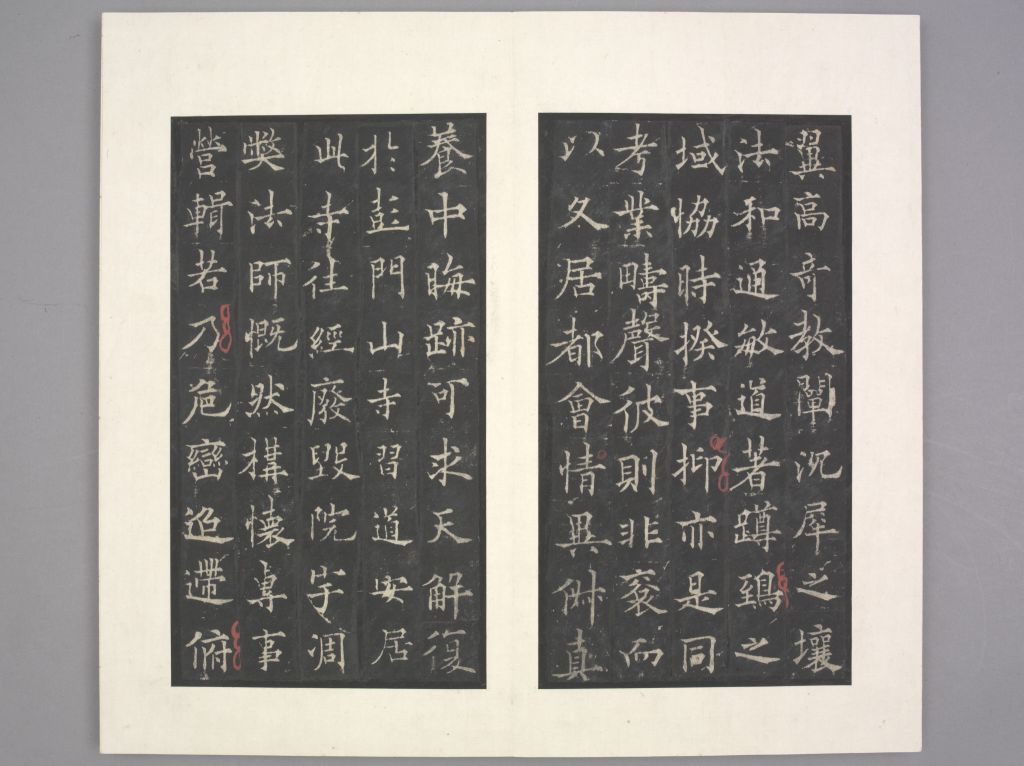 翼高奇教闡沉犀之壤
法和通敏道著蹲鵄之
域恊時揆事抑亦是同
考業疇聲彼則非衮而
以久居都會情異倂真
養中晦跡可求天解復
於彭門山寺習道安居
此寺往經廢毀院宇凋
弊法師慨然構懷專事
營輯若乃危巒迢遰俯